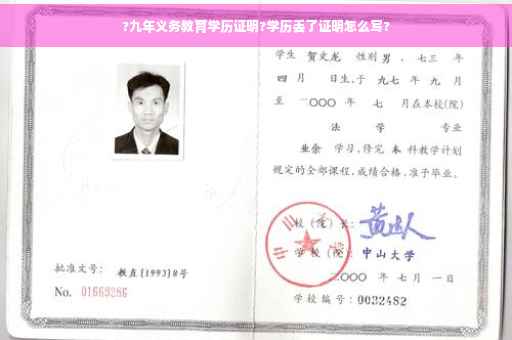 ?九年义务教育学历证明?学历丢了证明怎么写?
学生 贺文龙 性别 男 、七三 年
四 月 日生,于 九七 年 九 月
至 二〇〇〇 年 七 月在本校(院)
法 学 专业
业余 学习,修完 本 科教学计划
规定的全部课程,成绩合格,准予毕业。
校(院)长:
学校(院): 中山大学
二〇〇〇 年 七 月 一 日
批准文号: 教直[1993]8号
No. 01663286
学校编号: 0032482